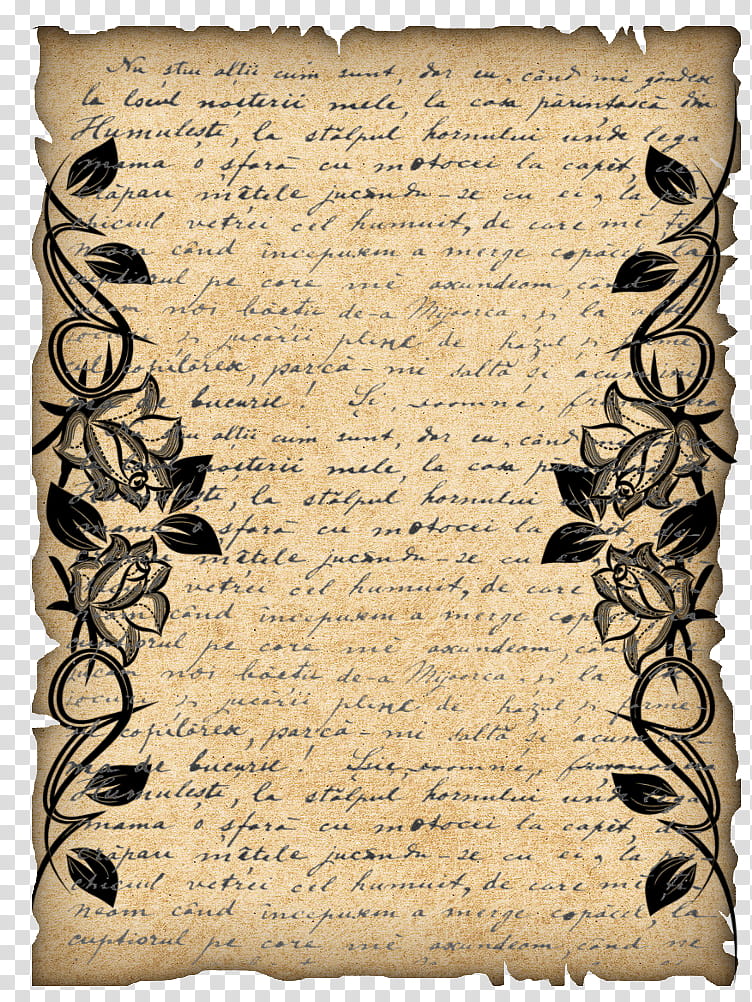 Nu știu alții cum sunt, dar eu, când mă gândesc
la locul nașterii mele, la casa părintească din
Humulești, la stâlpul hornului unde lega
mama o sfară cu motocei la capăt, de
crăpau mâțele jucându-se cu ei, la
vetrei cel humuit, de care mă
când începusem a merge copăcel, la
cuptiorul pe care mă ascundeam, când
noi băeții de-a Mijoarca, și la
și jucării pline de hazul și
copilăresc, parcă-mi saltă și acum
de bucurie! Și, doamne,
știu alții cum sunt, dar eu, când
nașterii mele, la casa
la stâlpul hornului
o sfară cu motocei la capăt
mâțele jucându-se cu
vetrei cel humuit, de care
când începusem a merge
pe care mă ascundeam,
noi băeții de-a Mijoarca, și la
și jucării pline de hazul și
copilăresc, parcă-mi saltă și acum
de bucurie! doamne,
Humulești, la stâlpul hornului unde lega
mama o sfară cu motocei la capăt, de
crăpau mâțele jucându-se cu ei, la
vetrei cel humuit, de care mă
când începusem a merge copăcel, la
cuptiorul pe care mă ascundeam, când ne